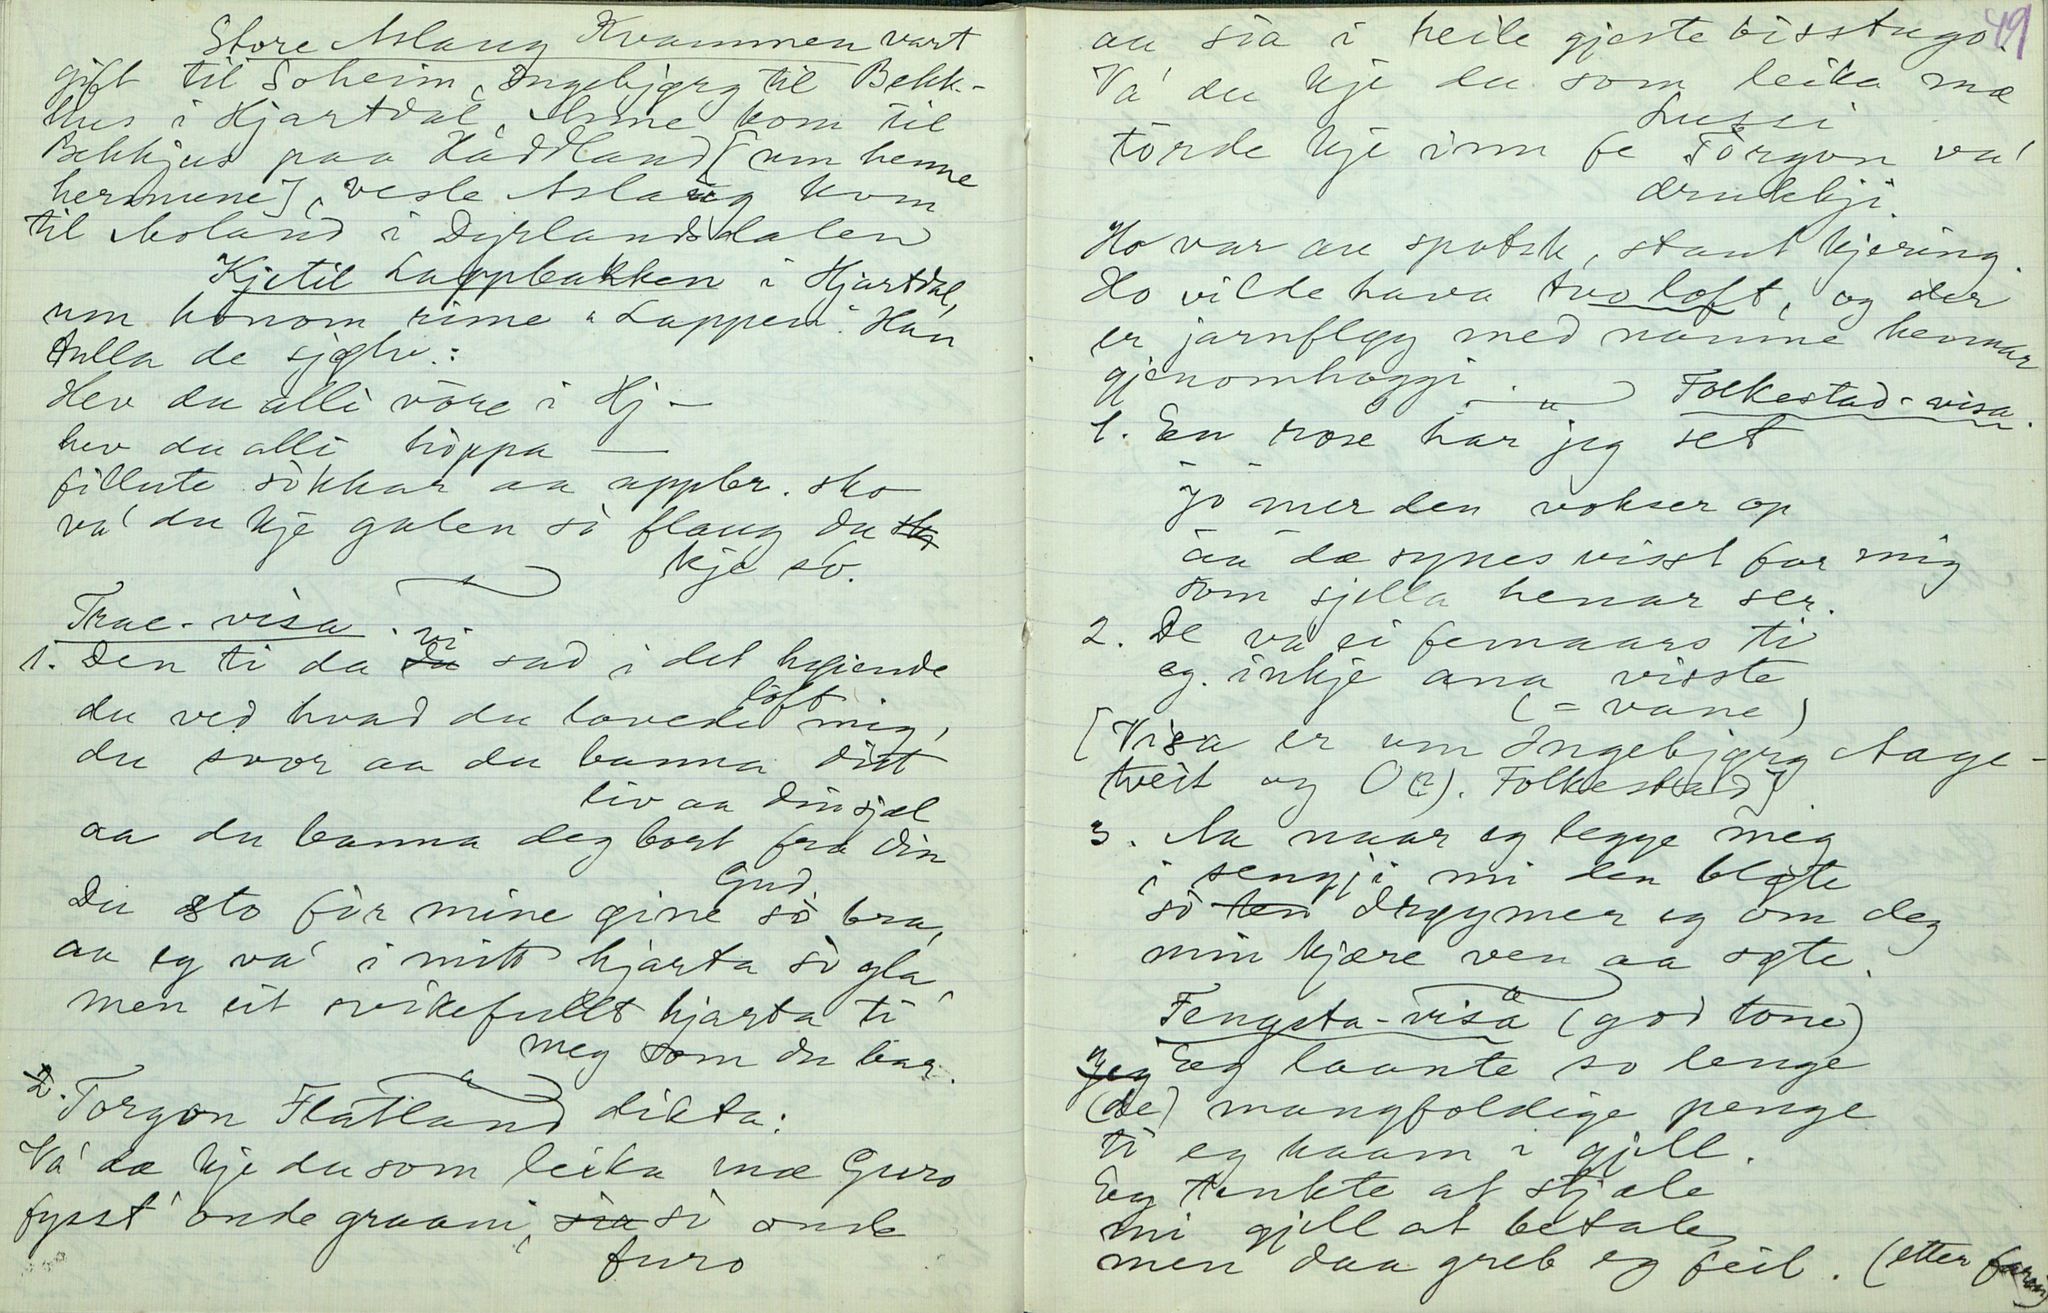 Store Aslaug Kvammen vart
gift til Soheim, Ingebjørg til Bekk-
hus i Hjartdal, Anne kom til
Bekkhus paa Håddland [um henne
hermune], vesle Aslaug kom
til Moland i Dyrlandsdalen
Kjetil Lappbakken i Hjartdal,
um honom rime "Lappen". Han
tulla de sjølv.:
Hev du alli vore i Hj —
hev du alli hoppa —
fillute sokkar aa uppbr. sko
va' du kje galen so flaug du
kje so.
Trae-visa.
1. Den ti da vi sad i det høiende
loft
du ved hvad du lovede mig,
du svor aa du banna ditt
liv aa din sjæl
aa du banna deg bort fra din
Gud
Du sto for mine øine so bra,
aa eg va' i mitt hjarta so gla,
men eit svikefullt hjarta ti
meg som du bar.
2. Torgon Flatland dikta:
Va' dæ kje du som leika mæ Guro
fysst onde graani, so onde
furo
49
au sia i heile gjestebisstugo.
Va' du kje du som leika mæ
Lussi
torde kje inn fe Torgon va'
drukkji.
Ho var au spotsk, staut kjering.
Ho vilde hava tvo loft, og der
er jarnfløy med namne hennar
gjenomhoggji.
Folkestad-visa.
1. En rose har jeg set
jo mer den vokser op
aa dæ synes visst for mig
som sjella henar ser.
2. De va ei femaars ti
eg inkje ana visste
(= vane)
[Visa er um Ingebjørg Aage-
tveit og O(?). Folkestad]
3. Aa naar eg legge meg
i sengji mi den bløte
so drøymer eg om deg
min kjære ven aa søte.
Fengsta-visa (god tone)
Eg laante so lenge
(de) mangfoldige penge
ti eg kaam i gjell.
Eg tenkte at stjæle
mi gjell at betale
men daa greb eg feil. (etter